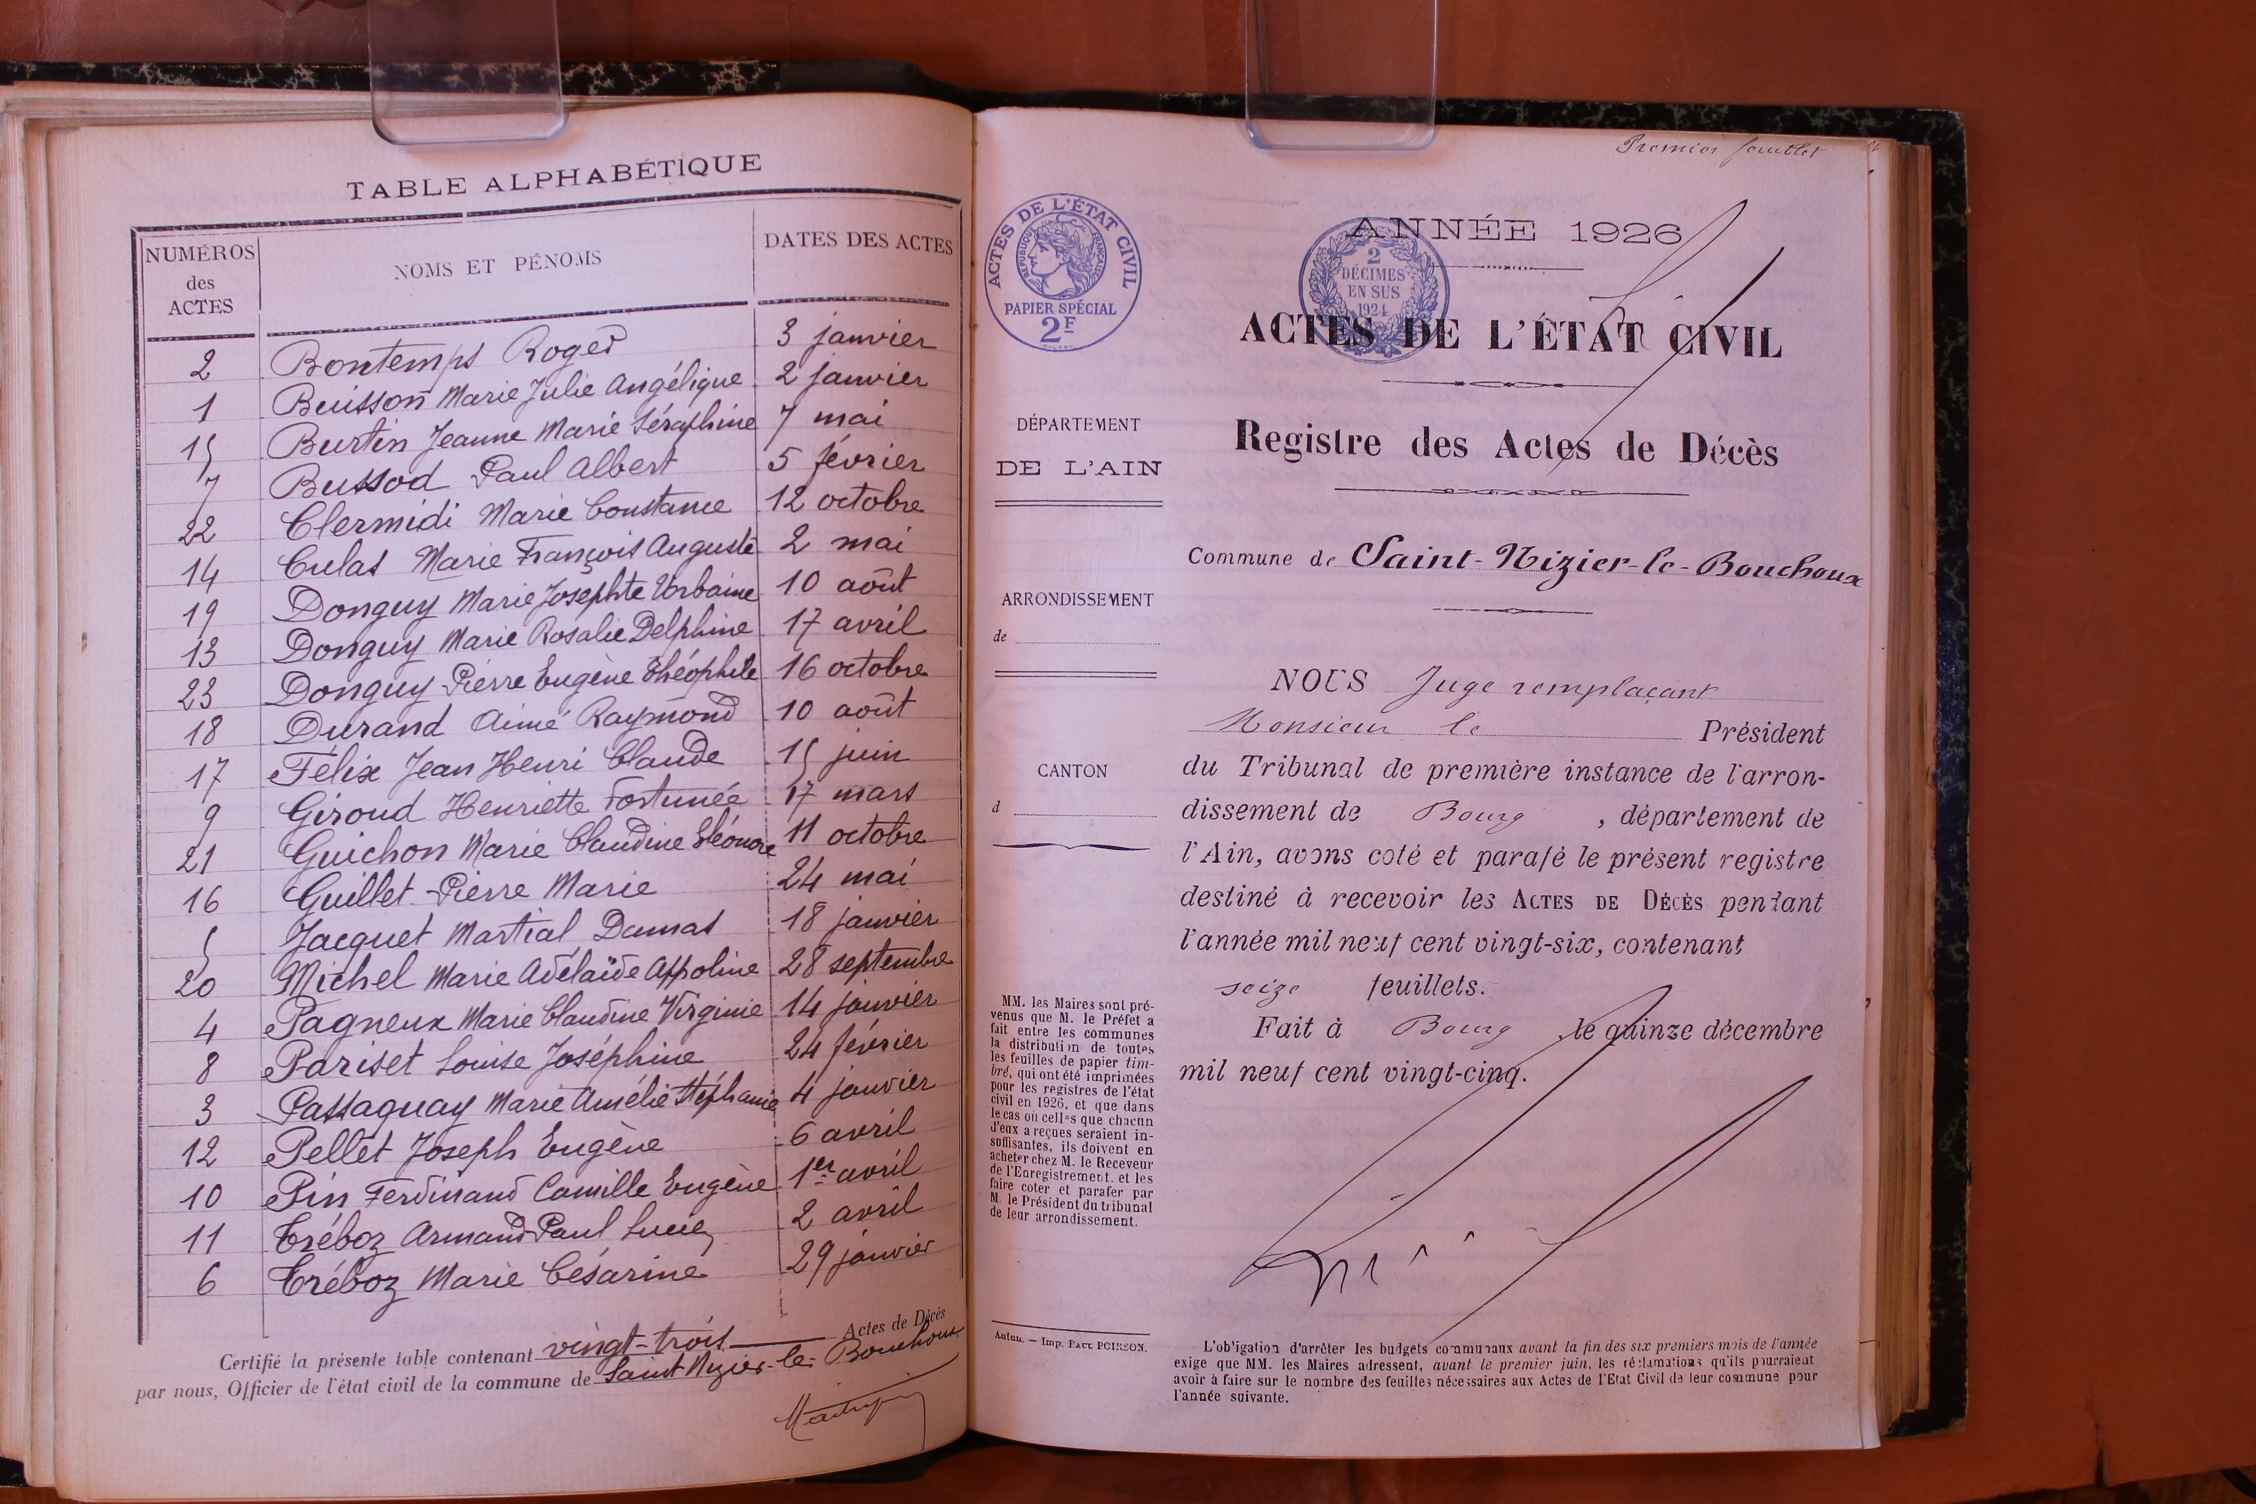 TABLE ALPHABÉTIQUE
NUMÉROS
des
ACTES
NOMS ET PÉNOMS
DATES DES ACTES
2 Bontemps Roger 3 janvier
1 Buisson Marie Julie Angélique 2 janvier
15 Burtin Jeanne Marie Séraphine 7 mai
7 Bussod Paul Albert 5 février
22 Clermidi Marie Constance 12 octobre
14 Culas Marie François Auguste 2 mai
19 Donguy Marie Josephte Urbaine 10 août
13 Donguy Marie Rosalie Delphine 17 avril
23 Donguy Pierre Eugène Théophile 16 octobre
18 Durand Aimé Raymond 10 août
17 Félix Jean Henri Claude 15 juin
9 Giroud Henriette Fortunée 17 mars
21 Guichon Marie Claudine Eléonore 11 octobre
16 Guillet Pierre Marie 24 mai
5 Jacquet Martial Damas 18 janvier
20 Michel Marie Adélaïde Appoline 28 septembre
4 Pagneux Marie Claudine Virginie 14 janvier
8 Pariset Louise Joséphine 24 février
3 Passaquay Marie Amélie Stéphanie 4 janvier
12 Pellet Joseph Eugène 6 avril
10 Pin Ferdinand Camille Eugène 1er avril
11 Tréboz Armand Paul 2 avril
6 Tréboz Marie Césarine 29 janvier
Certifié la présente table contenant vingt-trois Actes de Décès
par nous, Officier de l'état civil de la commune de Saint Nizier-le-Bouchoux
Premier feuillet
ACTES DE L'ÉTAT CIVIL
RÉPUBLIQUE FRANÇAISE
PAPIER SPÉCIAL
2F
2
DÉCIMES
EN SUS
1924
ANNÉE 1926
ACTES DE L'ÉTAT CIVIL
Registre des Actes de Décès
Commune de Saint-Nizier-le-Bouchoux
DÉPARTEMENT
DE L'AIN
ARRONDISSEMENT
de
CANTON
d
NOUS Juge remplaçant
Monsieur le Président
du Tribunal de première instance de l'arron-
dissement de Bourg, département de
l'Ain, avons coté et parafé le présent registre
destiné à recevoir les ACTES DE DÉCÈS pendant
l'année mil neuf cent vingt-six, contenant
seize feuillets.
Fait à Bourg, le quinze décembre
mil neuf cent vingt-cinq.
MM. les Maires sont pré-
venus que M. le Préfet a
fait entre les communes
la distribution de toutes
les feuilles de papier tim-
bré, qui ont été imprimées
pour les registres de l'état
civil en 1926, et que dans
le cas où celles que chacun
d'eux a reçues seraient in-
suffisantes, ils doivent en
acheter chez M. le Receveur
de l'Enregistrement, et les
faire coter et parafer par
M. le Président du tribunal
de leur arrondissement.
Autun. — Imp. PAUL POIRSON.
L'obligation d'arrêter les budgets communaux avant la fin des six premiers mois de l'année
exige que MM. les Maires adressent, avant le premier juin, les réclamations qu'ils pourraient
avoir à faire sur le nombre des feuilles nécessaires aux Actes de l'Etat Civil de leur commune pour
l'année suivante.